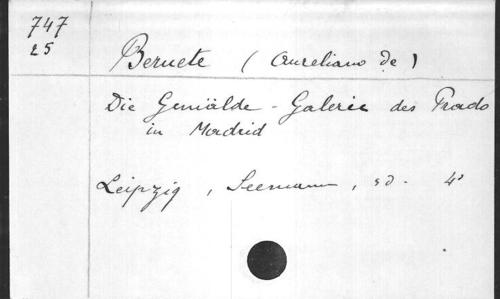 747
25
Beruete (Aureliano de)
Die Gemälde-Galerie des Prado
in Madrid
Leipzig, Seemann, sd. 4°